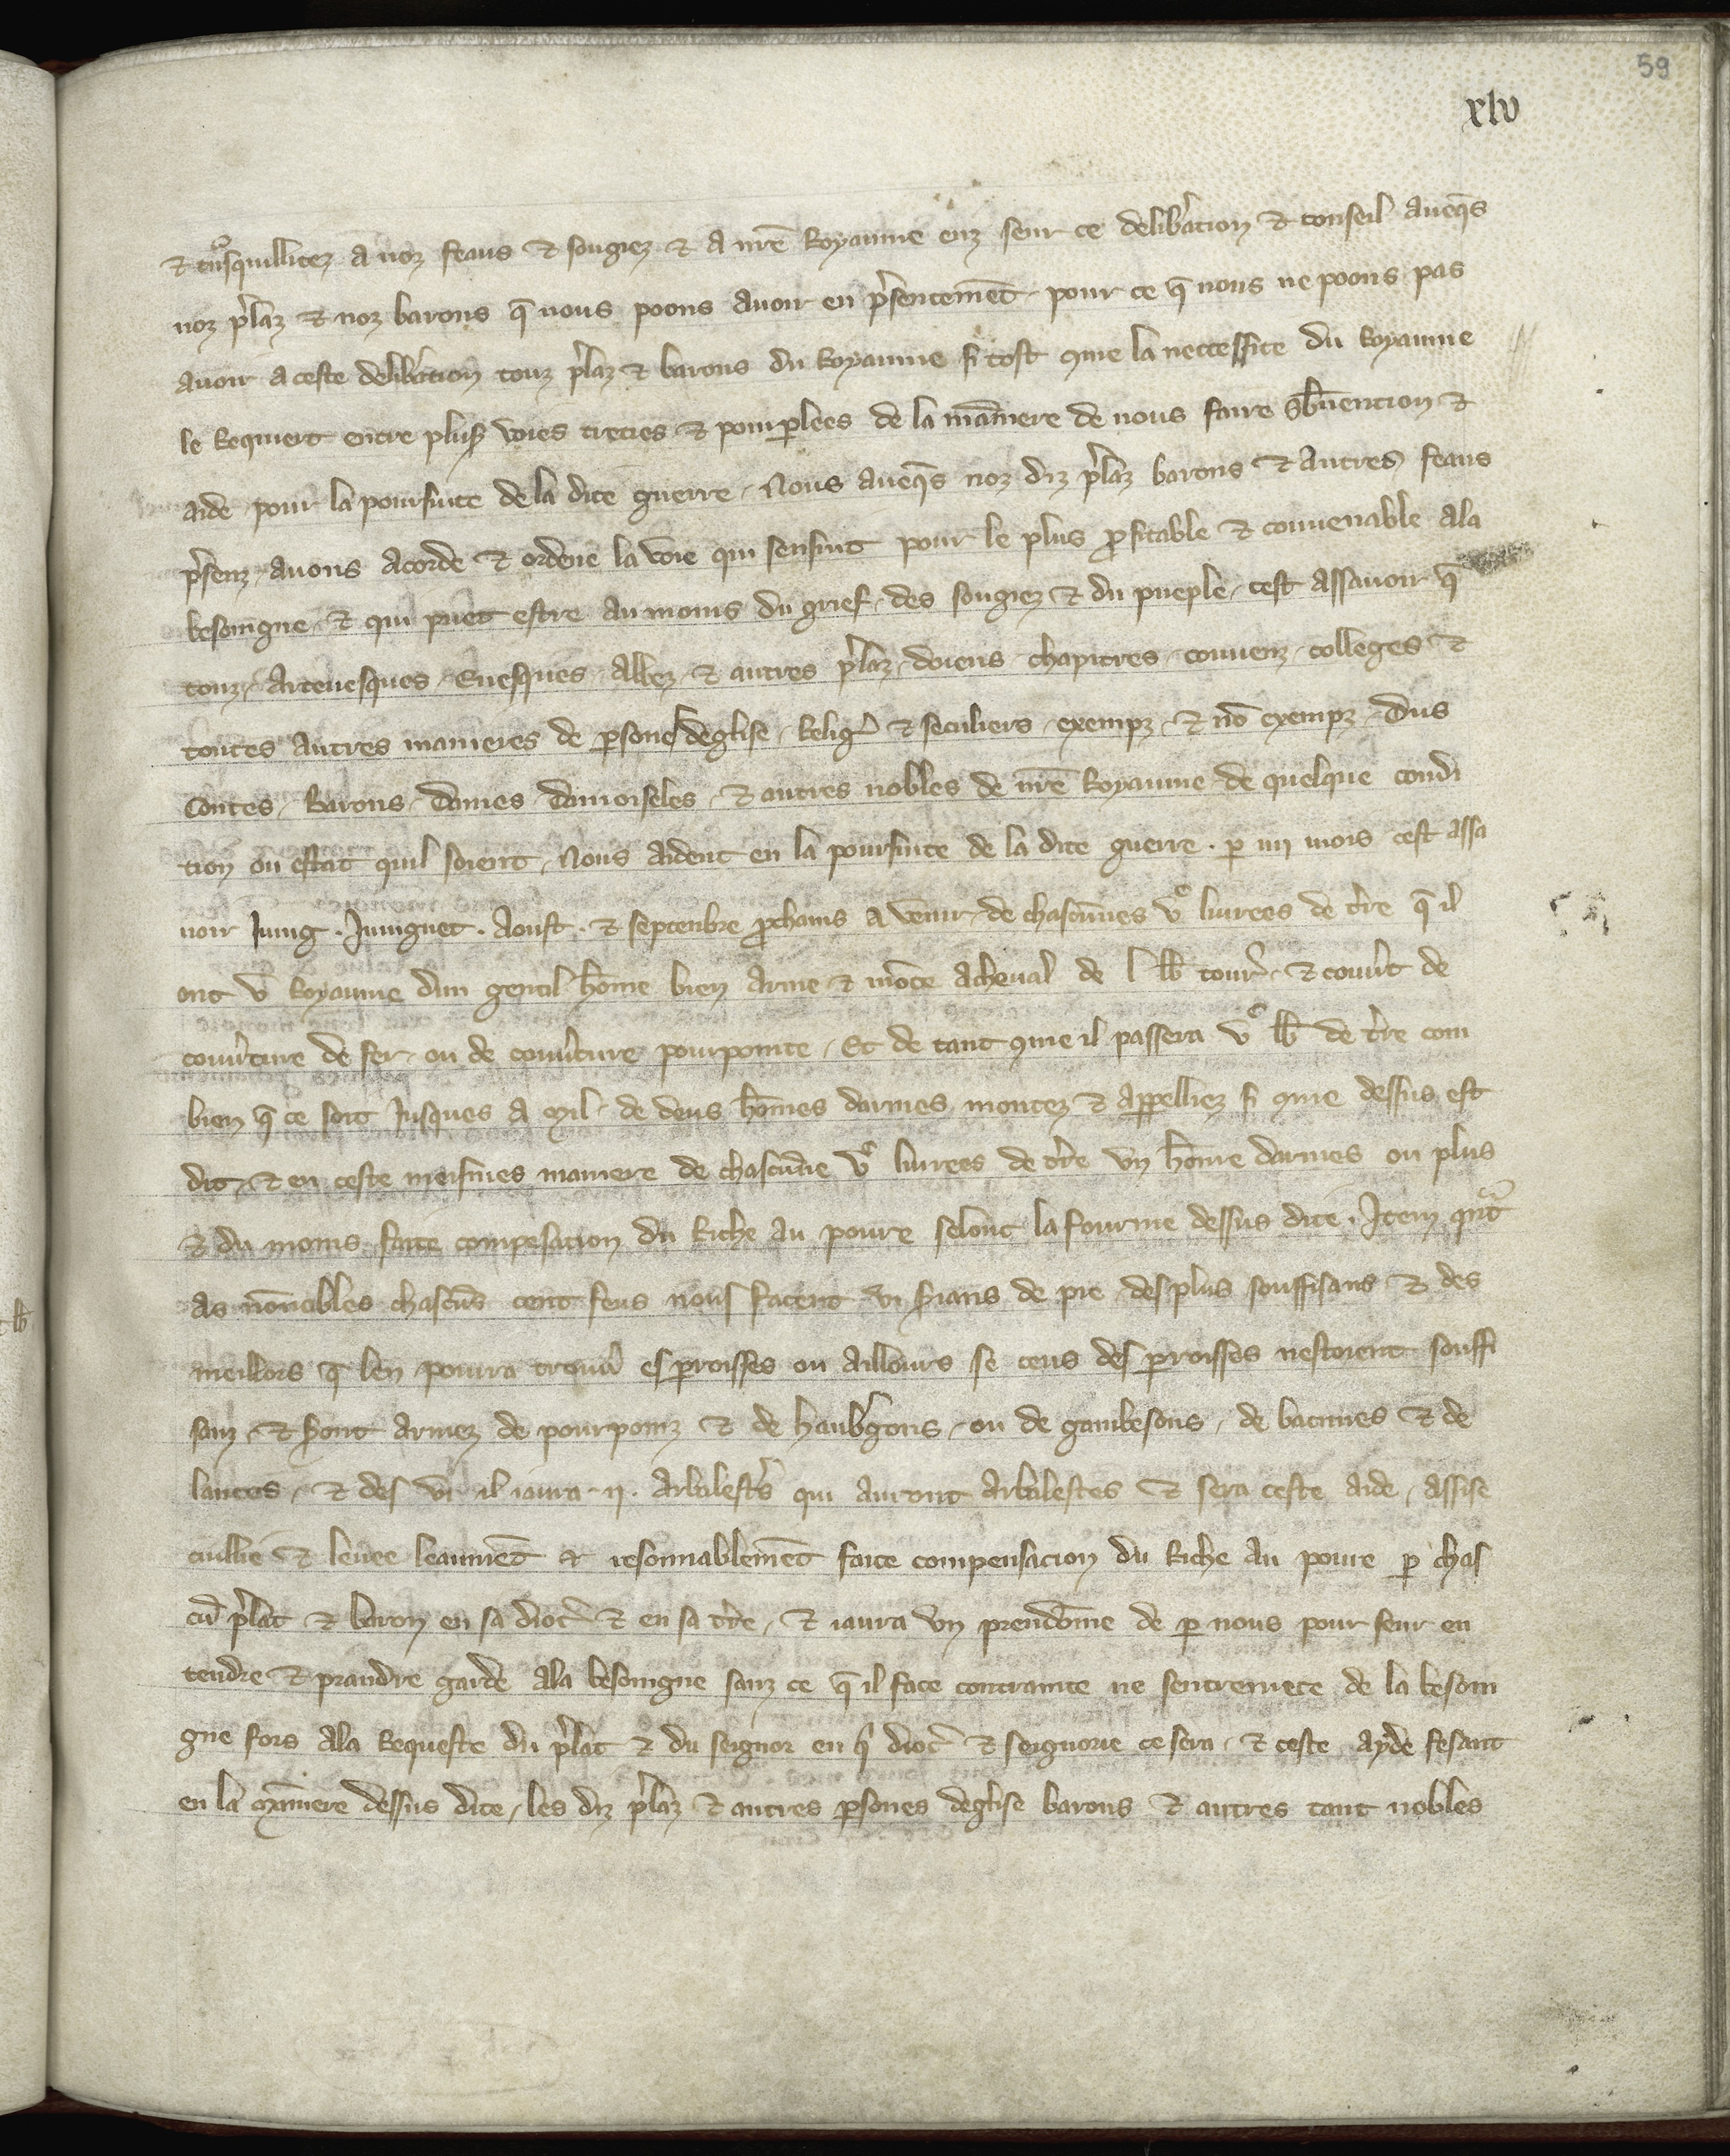 59
xlv
⁊ tᵃnsquillitez a noz feaus ⁊ sougiez ⁊ a nr̄e Royaume euz seur ce delib̾ation ⁊ conseil aueq̄s
noz p̾laz ⁊ noz barons q̄ nous poons auoir en p̾sentemēt pour ce q̄ nous ne poons pas
auoir a ceste delib̾acion touz p̾laz ⁊ barons du Royaume si tost que la neccessite du Royaume
le Requiert entre plus̾ voies treties ⁊ pourꝑlees de la maniere de nous faire sb̄uention ⁊
aide pour la poursuite de la dite guerre. Nous aueq̄s noz diz p̾laz barons ⁊ autres feaus
p̾senz auons acorde ⁊ ordene la voie qui sensuit pour le plus ꝓfitable ⁊ conuenable ala
besoingne ⁊ qui puet estre au moins du grief des sougiez ⁊ du pueple, cest assauoir q̄
touz Arceuesques Euesques Abbez ⁊ autres p̾laz doiens chapitres conuenz colleges ⁊
toutes autres manieres de ꝑsones deglise Relig̾ ⁊ seculiers exempz ⁊ nō exempz Dus
Contes Barons Dames Damoiseles ⁊ autres nobles de nr̄e Royaume de quelque condi
tion ou estat quil soient, Nous aident en la poursuite de la dite guerre. ꝑ iiij mois cest assa
uoir Juing. Juingnet. Aoust. ⁊ septenbre ꝓchains a venir de chascūnes vᶜ liurees de t̾re q̄ il
ont v̄ Royaume dun gentil hōme bien arme ⁊ mōte a cheual de l lb̄ tour̾ ⁊ couu̾t de
couu̾ture de fer ou de couu̾ture pourpointe, Et de tant que il passera vᶜ lb̄ de t̾re com
bien q̄ ce soit Jusques a mil de deus hōmes darmes montez ⁊ appelliez si que dessus est
dit, ⁊ en ceste meismes maniere de chascūne vᶜ liurees de t̾re vn hōme darmes ou plus
⁊ du moins faite compesacion du Riche au poure selonc la fourme dessus dite. Item q̄nt
as nōnobles chascūs cent feus nous facent vi s̾ians de pie des plus souffisans ⁊ des
meillors q̄ len pourra trouu̾ es ꝑroisses ou aillours se ceus des ꝑroisses nestoient souffi
sanz ⁊ s̾ont armez de pourpoinz ⁊ de haub̾gons ou de gambesons, de bacines ⁊ de
lances, ⁊ des vi il iaura ij. Arbalest̾s qui auront Arbalestes ⁊ sera ceste aide, assise
cuillie ⁊ leuee leaumēt ⁊ resonnablemēt faite compensacion du Riche au poure ꝑ chas
cū p̾lat ⁊ baron en sa dioc̾ ⁊ en sa t̾re, ⁊ iaura vn preudōme de ꝑ nous pour seur en
tendre ⁊ prandre garde ala besoingne sanz ce q̄ il face contrainte ne sentremete de la besoin
gne fors ala Requeste du p̾lat ⁊ du seignor en q̄ dioc̾ ⁊ seignorie ce sera, ⁊ ceste ayde fesant
en la maniere dessus dite, les diz p̾laz ⁊ autres ꝑsones deglise barons ⁊ autres tant nobles